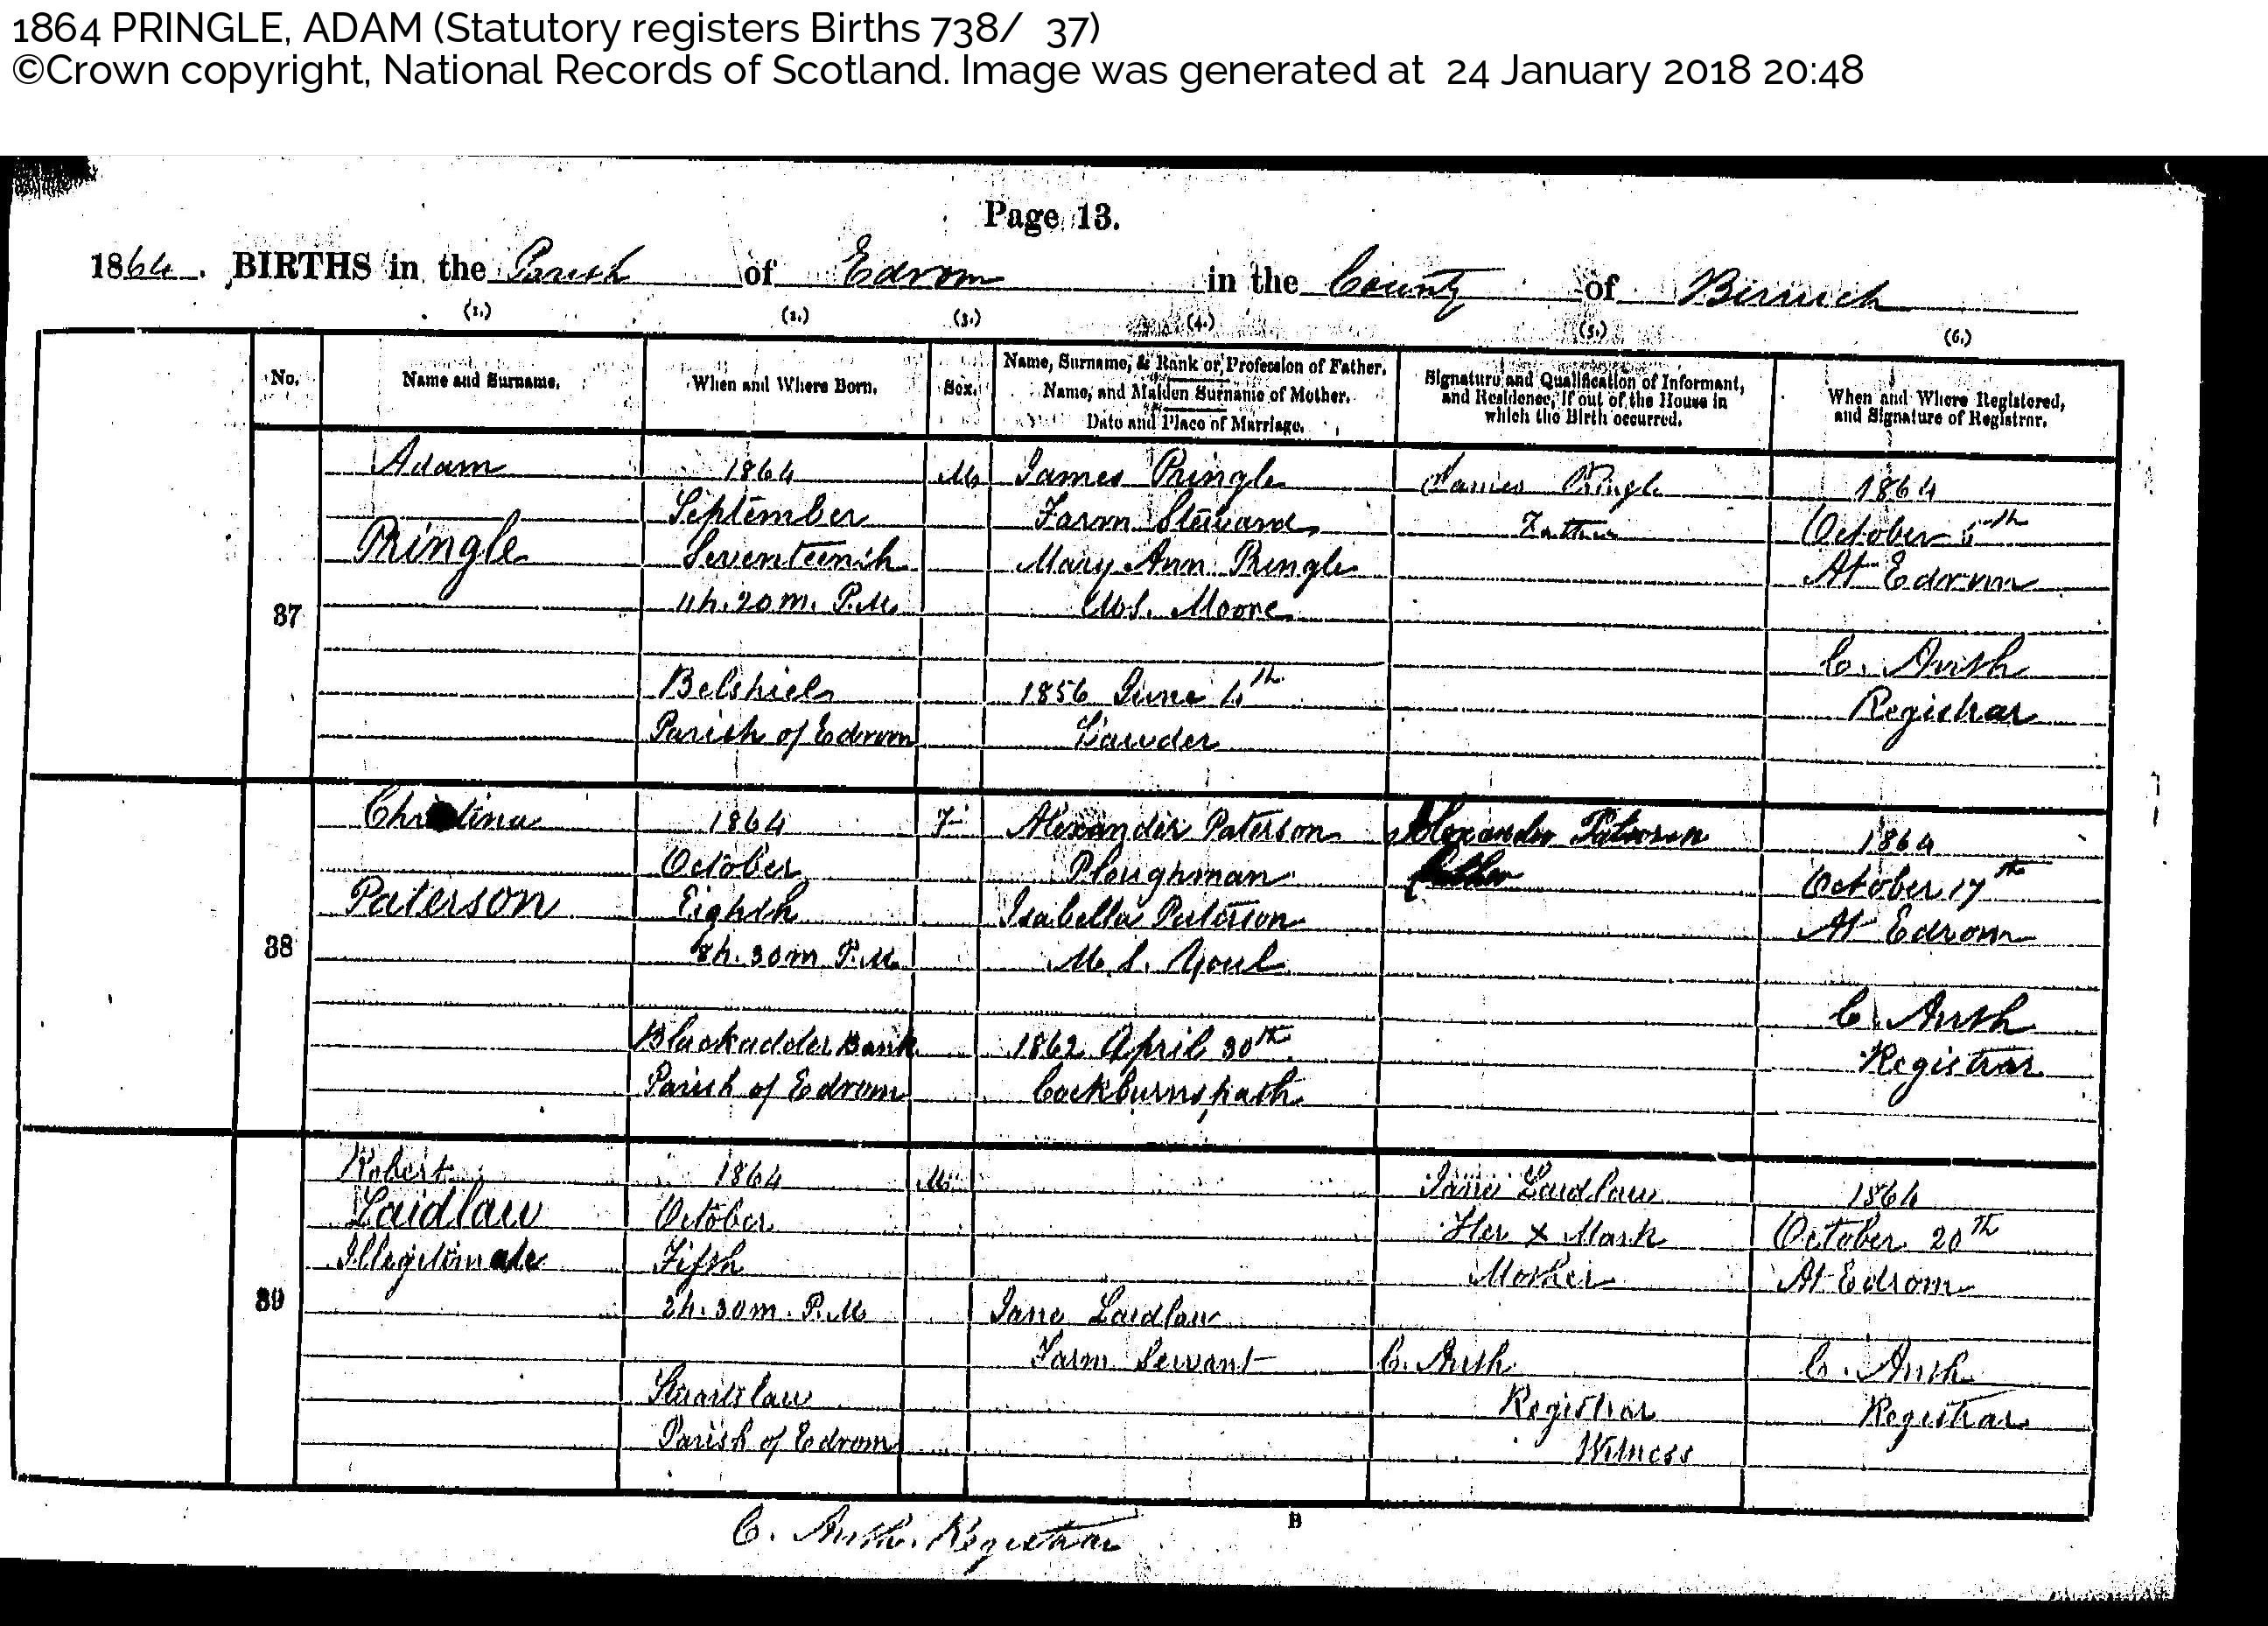 1864 PRINGLE, ADAM (Statutory registers Births 738/ 37)
©Crown copyright, National Records of Scotland. Image was generated at 24 January 2018 20:48
Page 13.
1864. BIRTHS in the Parish of Edrom in the County of Berwick
(1.) (2.) (3.) (4.) (5.) (6.)
No.
Name and Surname.
When and Where Born.
Sex.
Name, Surname, & Rank or Profession of Father.
Name, and Maiden Surname of Mother.
Date and Place of Marriage.
Signature and Qualification of Informant,
and Residence, if out of the House in
which the Birth occurred.
When and Where Registered,
and Signature of Registrar.
37
Adam
Pringle
1864
September
Seventeenth
4h. 20m. P.M.
Belshiel
Parish of Edrom
M.
James Pringle
Farm Steward
Mary Ann Pringle
M.S. Moore
1856 June 4th
Lauder
James Pringle
Father
1864
October
At Edrom
C.
Registrar
38
Christina
Paterson
1864
October
Eighth
8h. 30m P.M.
Blackadder Bank
Parish of Edrom
F
Alexander Paterson
Ploughman
Isabella Paterson
M.S. Youl
1862 April 30th
Cockburnspath
Alexander Paterson
father
1864
October 17th
At Edrom
C.
Registrar
39
Robert
Laidlaw
Illegitimate
1864
October
Fifth
2h. 30m. P.M.
Parish of Edrom
M.
Jane Laidlaw
Farm Servant
Jane Laidlaw
Her x Mark
Mother
C.
Registrar
Witness
1864
October 20th
At Edrom
C.
Registrar
C. Registrar
B